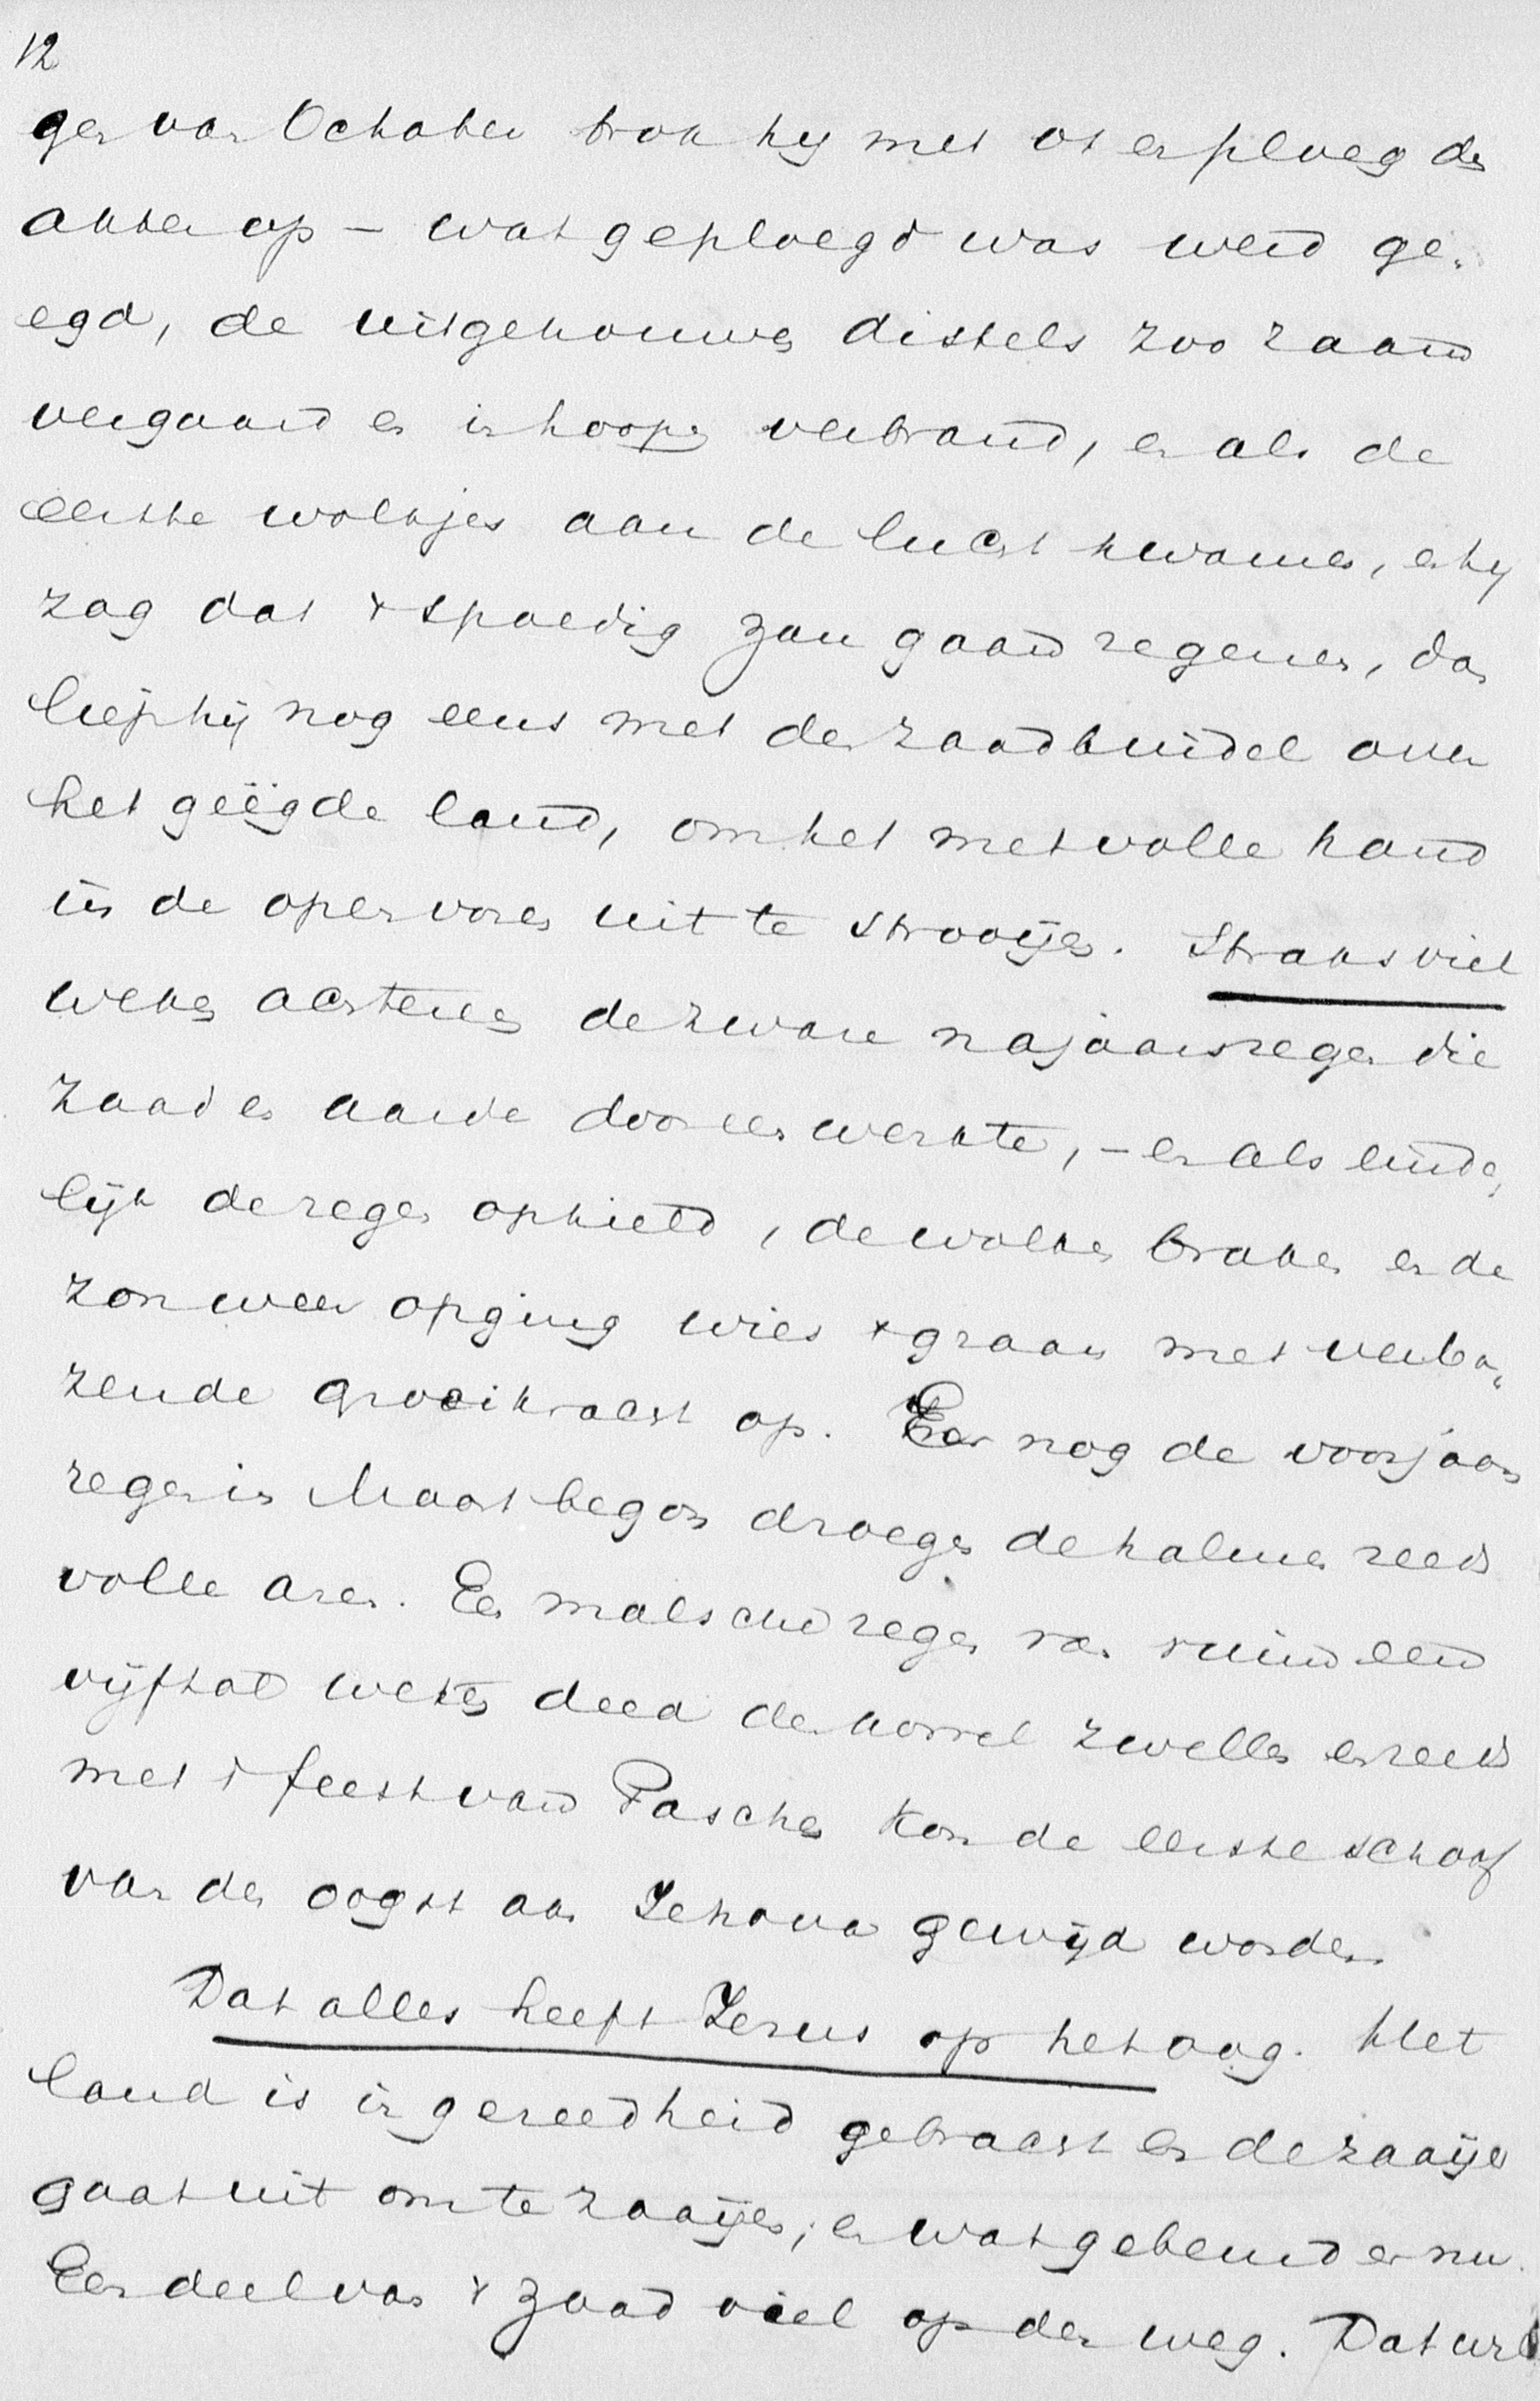 12
gen van October brak hij met os en ploeg den
akker op – wat geploegd was werd ge-
egd, de uitgehouwen distels zoo zaam
vergaard en in hoopen verbrand, en als de
eerste wolkjes aan de lucht kwamen, en hij
zag dat 't spoedig zou gaan regenen, dan
liep hij nog eens met den zaadbuidel over
het geëgde land, om het met volle hand
in de open voren uit te strooijen. Straks viel
weken achtereen de zware najaarsregen die
zaad en aarde dooreen werkte, – en als einde-
lijk de regen ophield, de wolken braken en de
zon weer opging wies 't graan met verba-
zende groeikracht op. Eer nog de voorjaars
regen in Maart begon droegen de halmen reeds
volle aren. Een malsche regen van ruim een
vijftal weken deed den korrel zwellen en reeds
met 't feest van Paschen kon de eerste schoof
van den oogst aan Jehova gewijd worden.
Dat alles heeft Jezus op het oog. Het
land is in gereedheid gebracht en de zaaijer
gaat uit om te zaaijen; en wat gebeurd er nu.
Een deel van 't zaad viel op den weg. Dat wil